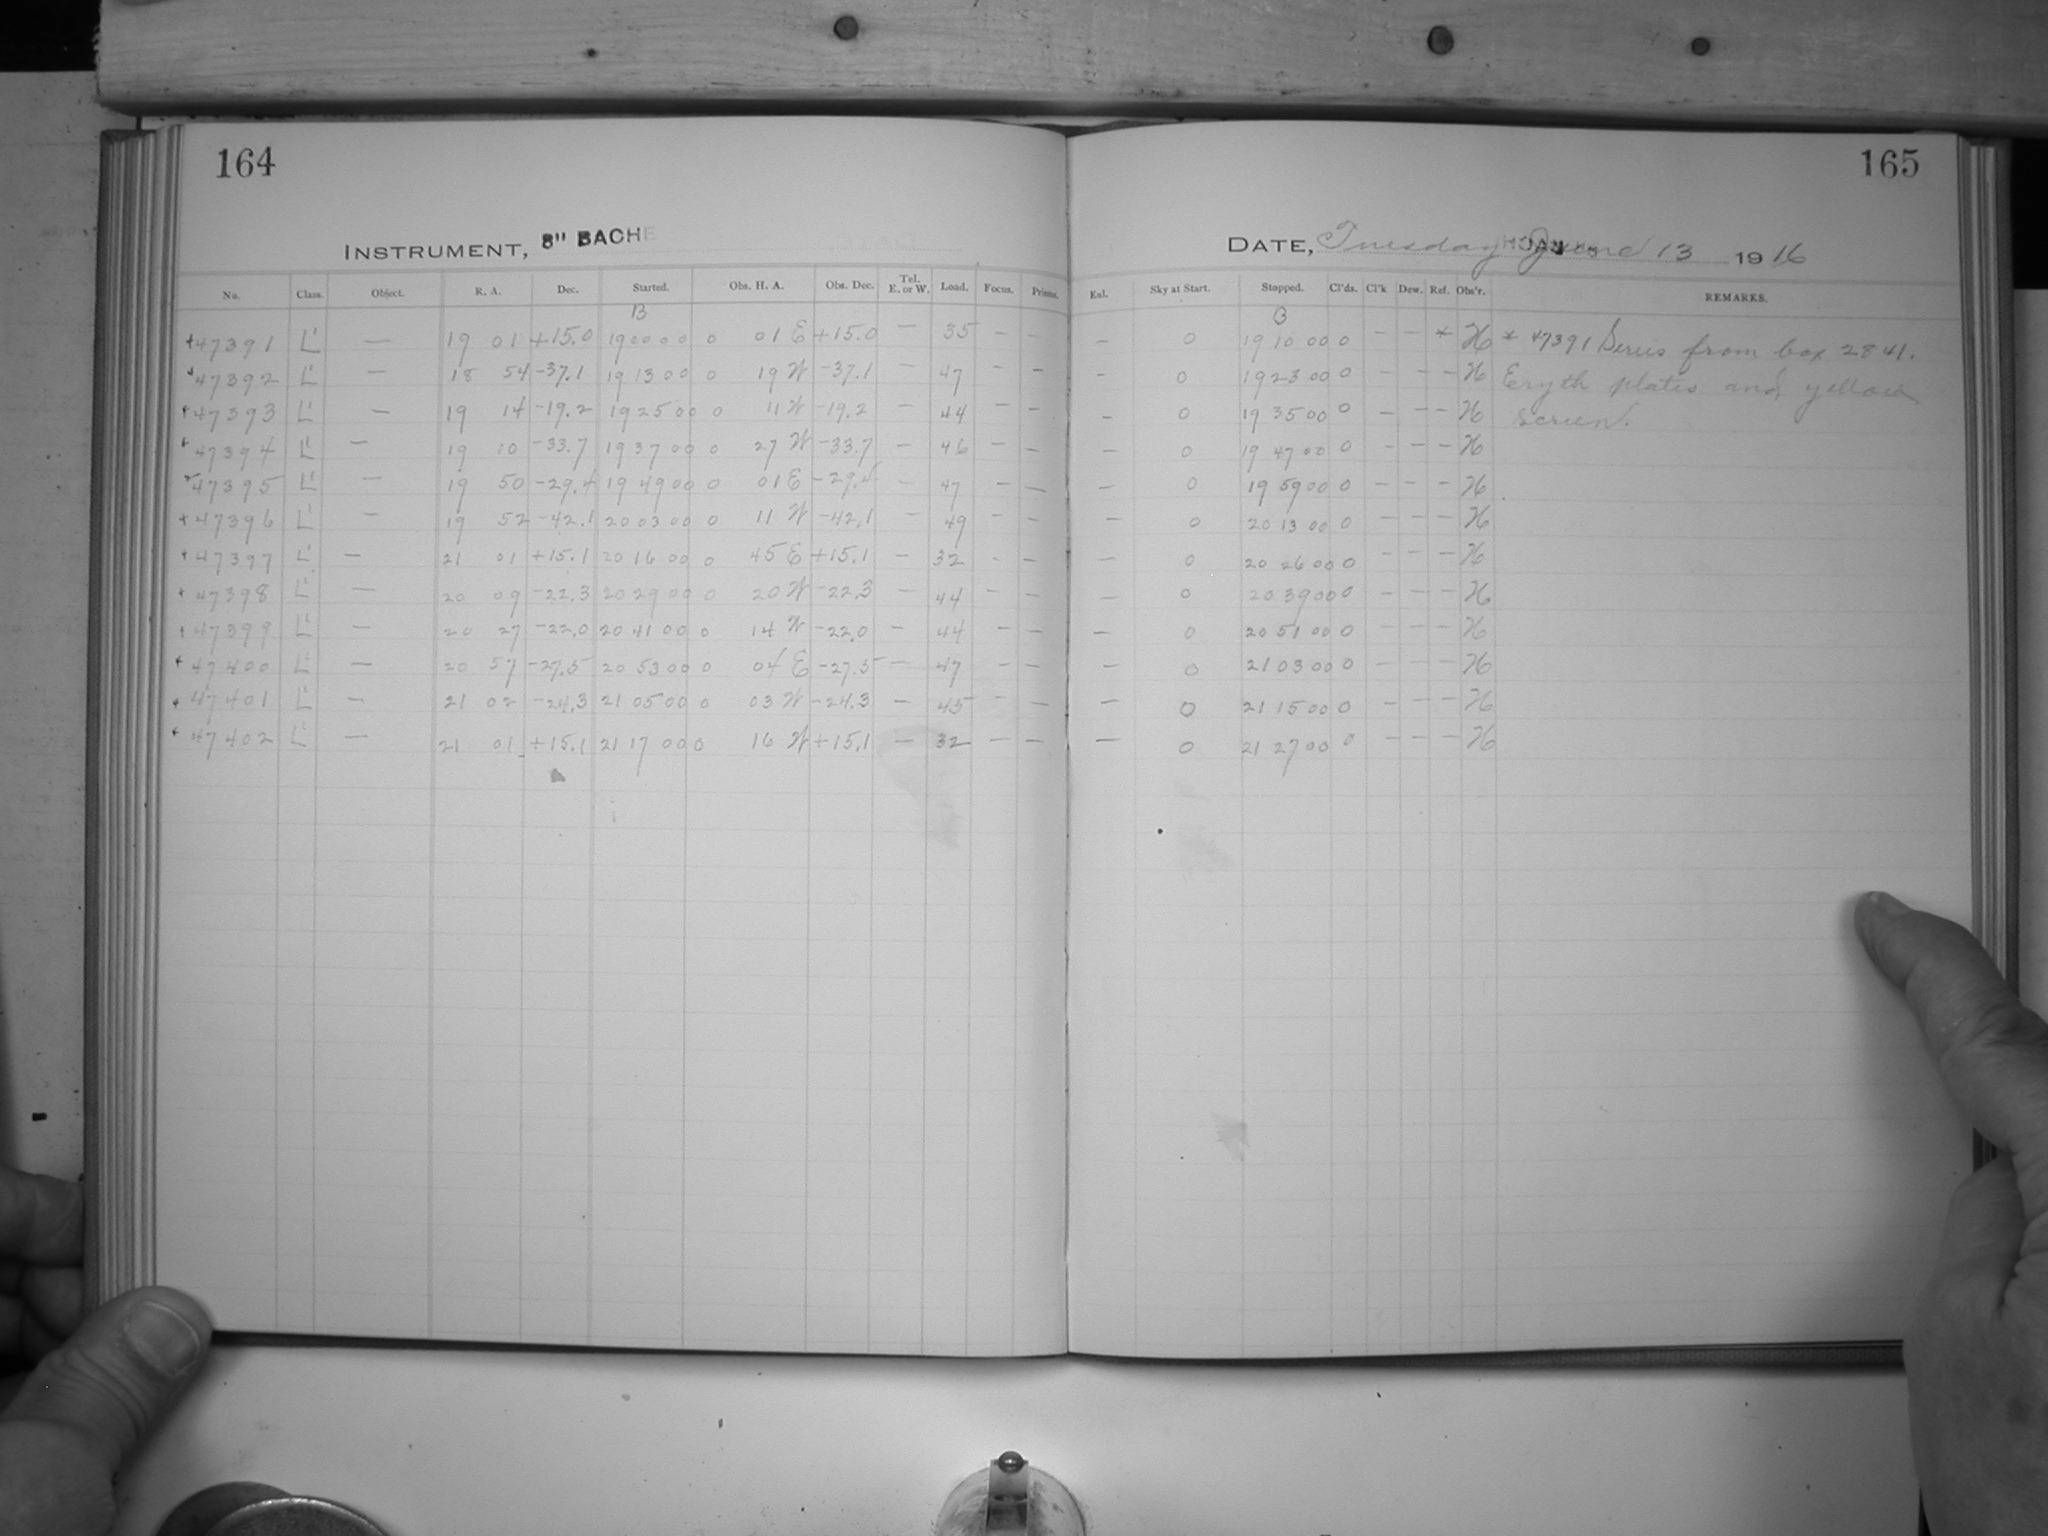 164
165
INSTRUMENT, 8" BACHE
DATE, Tuesday June 13 1916
No. Class. Object. R. A. Dec. Started. Obs. H. A. Obs. Dec. Tel. E. or W. Load. Focus. Prisms. Enl. Sky at Start. Stopped. Cl'ds. Cl'k Dew. Ref. Obs'r. REMARKS.
B B
+47391 L' — 19 01 +15.0 19 00 00 0 01 E +15.0 — 35 — — — 0 19 10 00 0 — — * H * 47391 Series from box 2841.
47392 L' — 18 54 -37.1 19 13 00 0 19 W -37.1 — 47 — — — 0 19 23 00 0 — — — H Eryth plates and yellow
+47393 L' — 19 14 -19.2 19 25 00 0 11 W -19.2 — 44 — — — 0 19 35 00 0 — — — H screen.
+47394 L' — 19 10 -33.7 19 37 00 0 27 W -33.7 — 46 — — — 0 19 47 00 0 — — — H
+47395 L' — 19 50 -29.4 19 49 00 0 01 E -29.4 — 47 — — — 0 19 59 00 0 — — — H
+47396 L' — 19 52 -42.1 20 03 00 0 11 W -42.1 — 49 — — — 0 20 13 00 0 — — — H
+47397 L' — 21 01 +15.1 20 16 00 0 45 E +15.1 — 32 — — — 0 20 26 00 0 — — — H
+47398 L' — 20 09 -22.3 20 29 00 0 20 W -22.3 — 44 — — — 0 20 39 00 0 — — — H
+47399 L' — 20 27 -22.0 20 41 00 0 14 W -22.0 — 44 — — — 0 20 51 00 0 — — — H
+47400 L' — 20 57 -27.5 20 53 00 0 04 E -27.5 — 47 — — — 0 21 03 00 0 — — — H
+47401 L' — 21 02 -24.3 21 05 00 0 03 W -24.3 — 45 — — — 0 21 15 00 0 — — — H
+47402 L' — 21 01 +15.1 21 17 00 0 16 W +15.1 — 32 — — — 0 21 27 00 0 — — — H